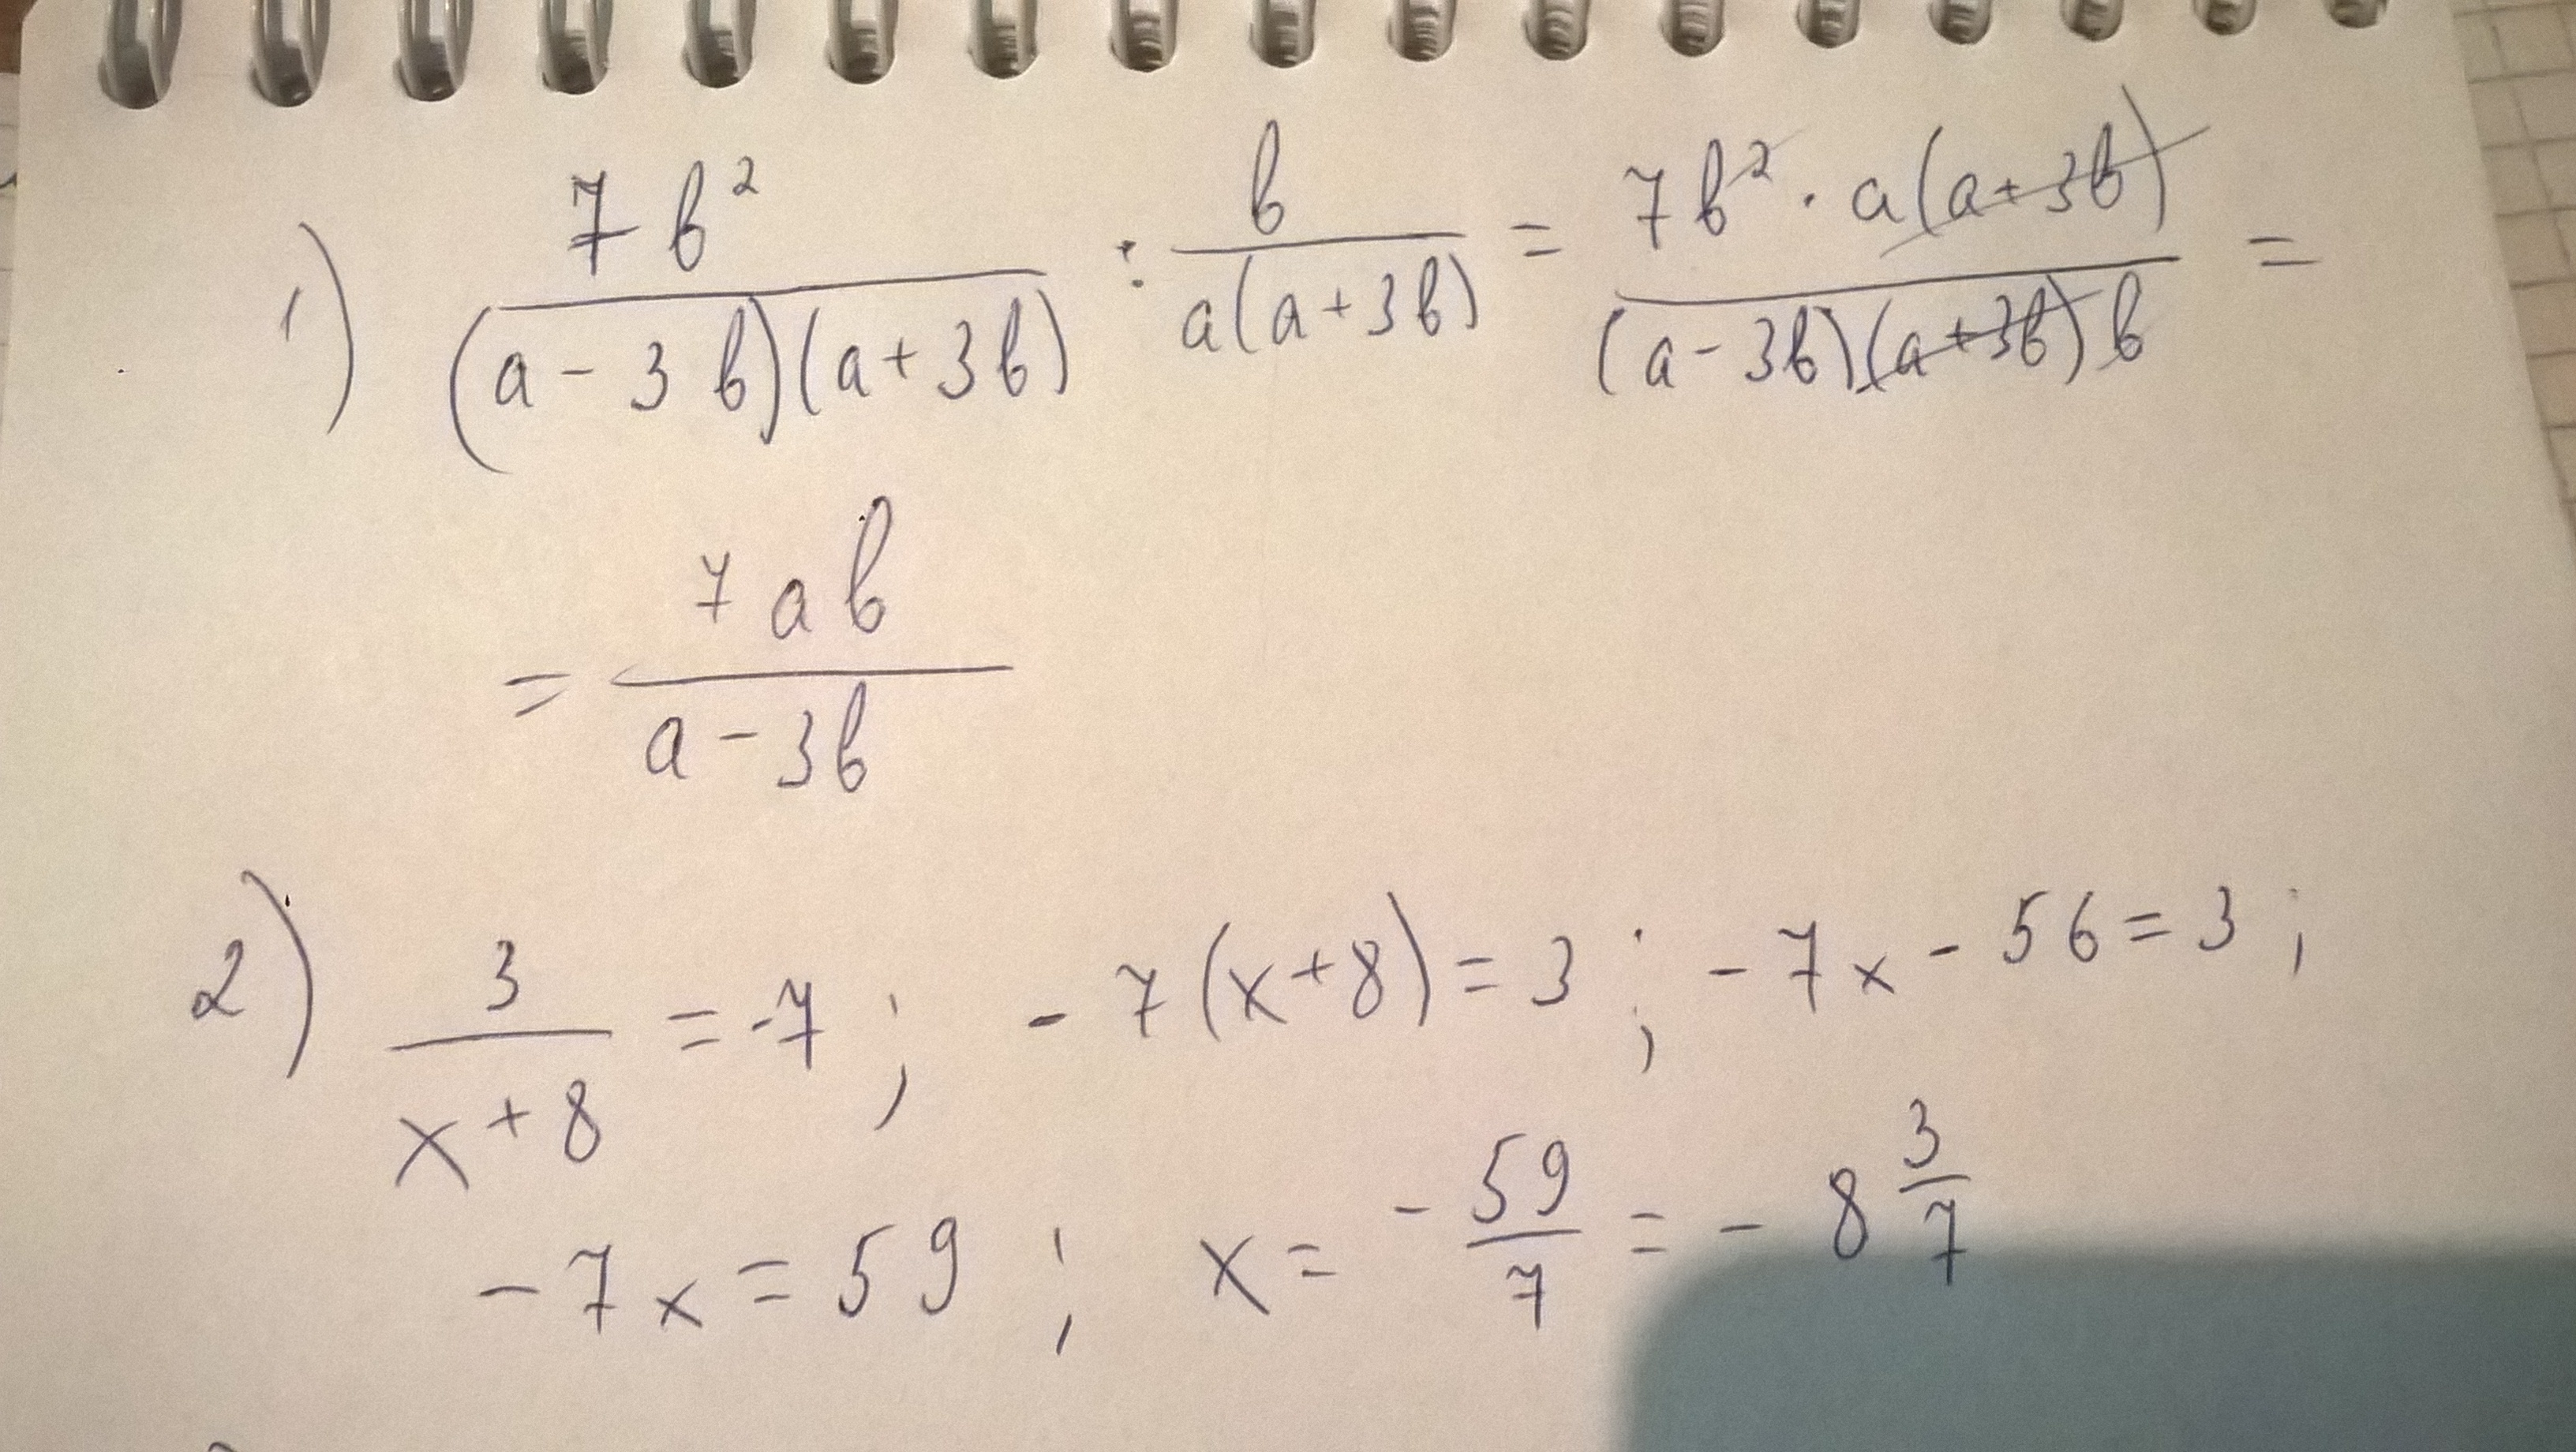 1) 7b² / (a-3b)(a+3b) : b / a(a+3b) = 7b² · a(a+3b) / (a-3b)(a+3b)b =
= 7ab / a-3b
2) 3 / x+8 = -7 ; -7(x+8) = 3 ; -7x - 56 = 3 ;
-7x = 59 ; x = - 59/7 = - 8 3/7